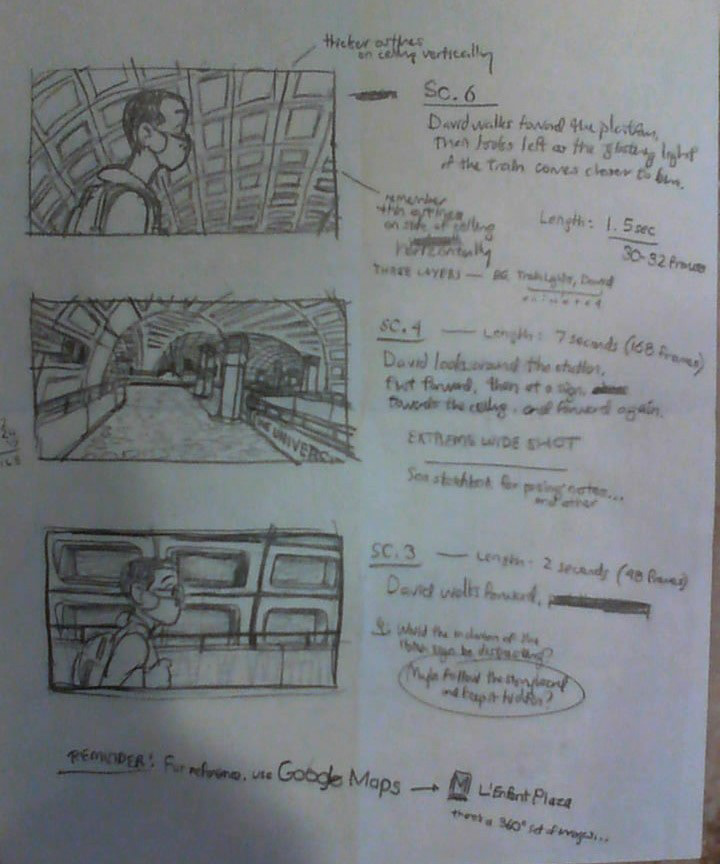 thicker outlines
on ceiling vertically
SC. 6
David walks toward the platform,
then looks left as the light
of the train comes closer to him.
remember
thin outlines
on side of ceiling
horizontally
Length: 1.5 sec
30-32 Frames
THREE LAYERS — BG, Train Lights, David
animated
SC. 4 — Length: 7 seconds (168 frames)
David looks around the station,
first forward, then at a sign,
towards the ceiling, and forward again.
EXTREME WIDE SHOT
See sketchbook for posing notes...
and other
THE UNIVERS
168
SC. 3 — Length: 2 seconds (48 frames)
David walks forward,
Q: Would the inclusion of the
sign be distracting?
Maybe follow the storyboard
and keep it hidden?
REMINDER: For reference, use Google Maps → M L'Enfant Plaza
there's a 360° set of images...